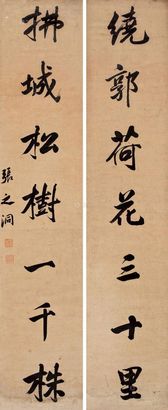 繞郭荷花三十里
拂城松樹一千株
張之洞